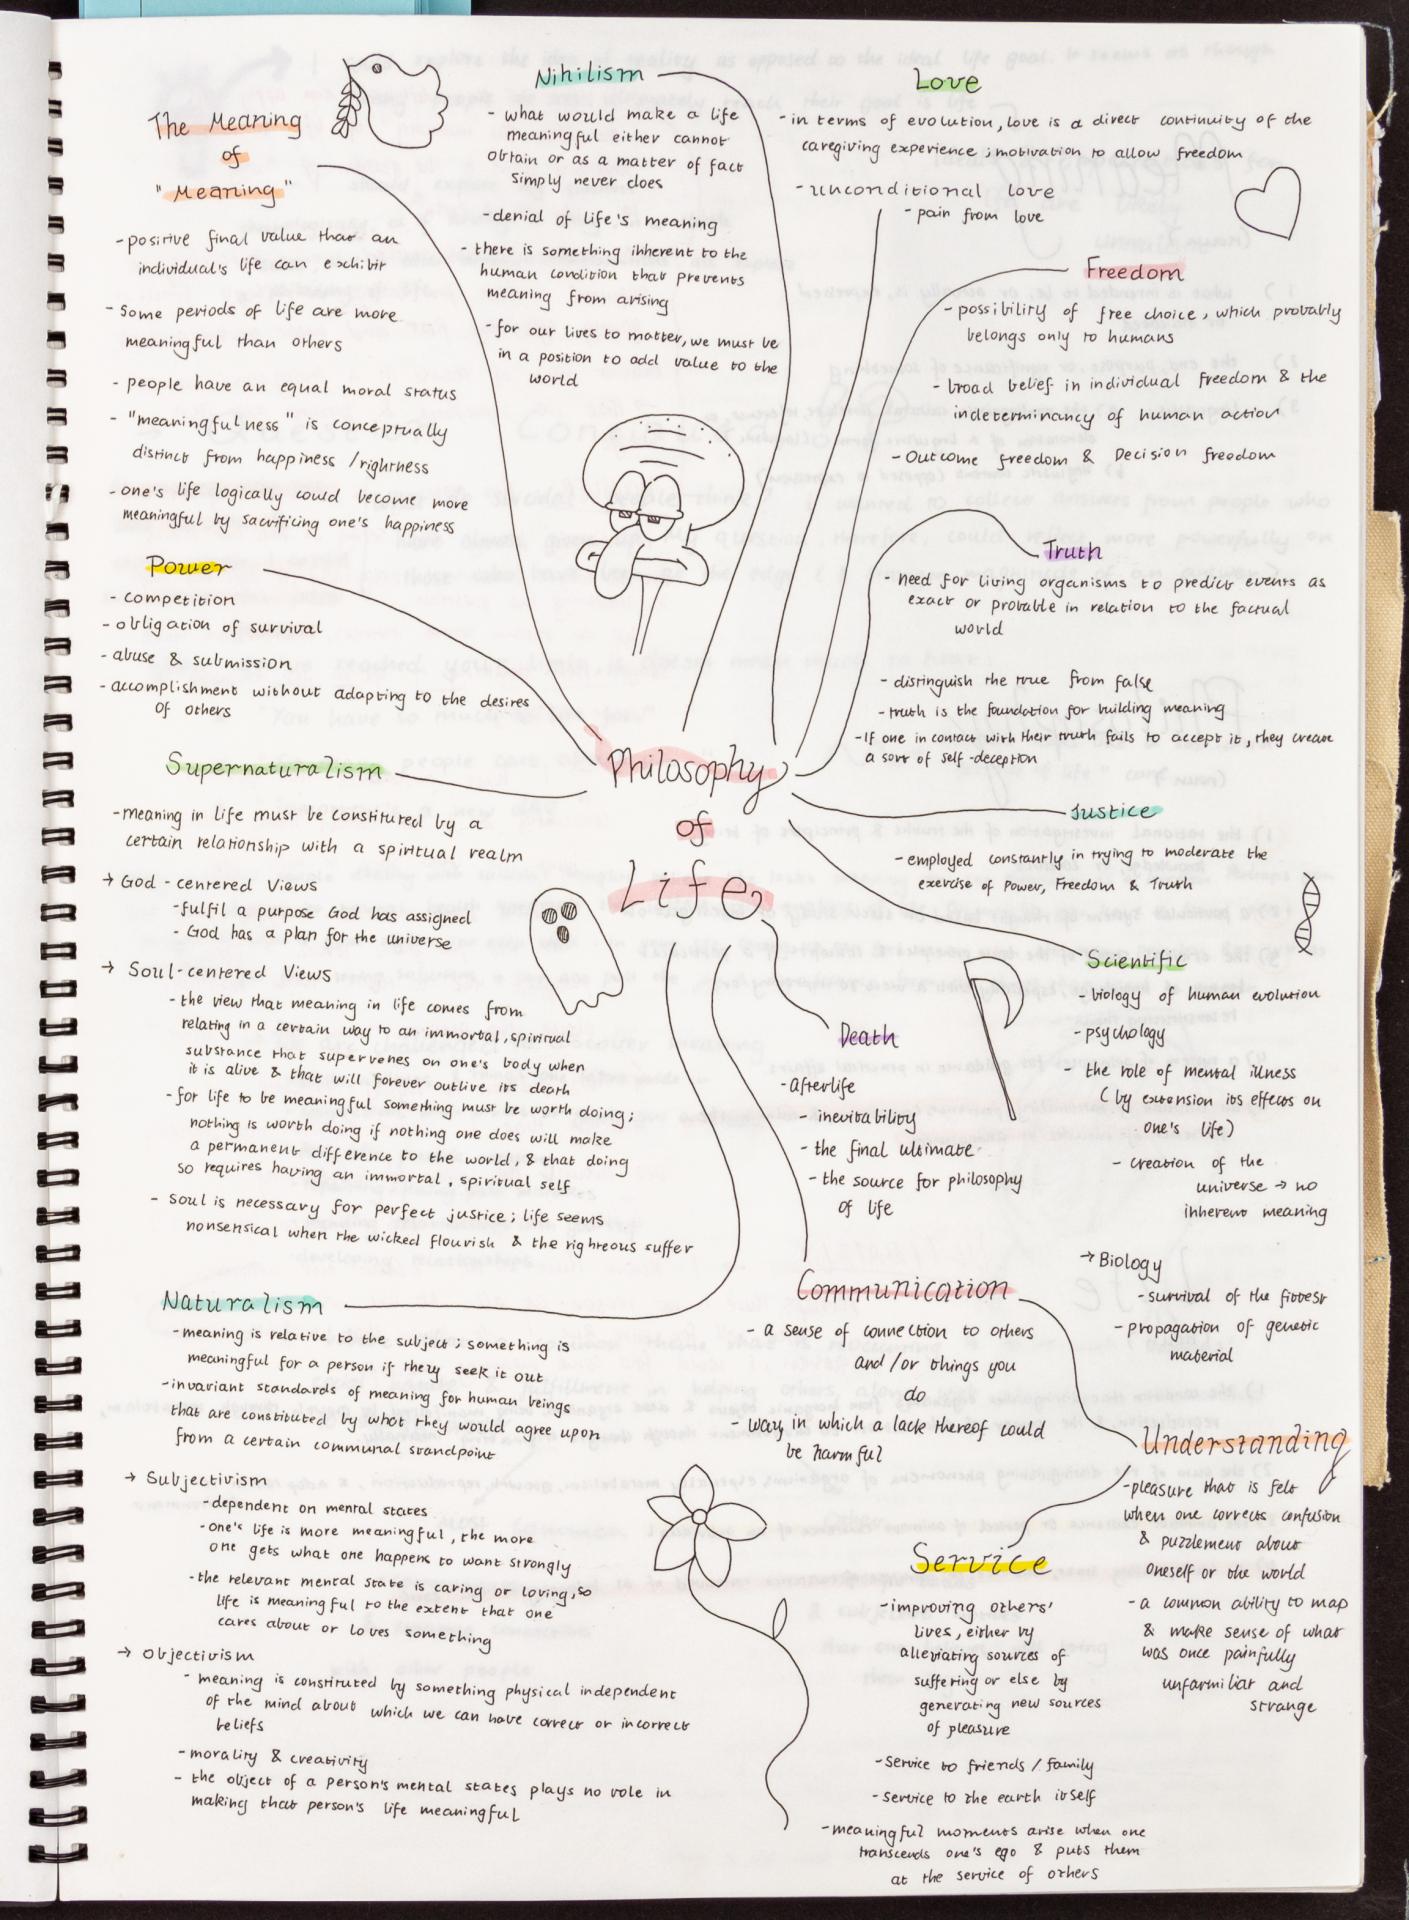 The Meaning
of
"Meaning"
- positive final value that an
individual's life can exhibit
- some periods of life are more
meaningful than others
- people have an equal moral status
- "meaningfulness" is conceptually
distinct from happiness / rightness
- one's life logically could become more
meaningful by sacrificing one's happiness
Nihilism
- what would make a life
meaningful either cannot
obtain or as a matter of fact
simply never does
- denial of life's meaning
- there is something inherent to the
human condition that prevents
meaning from arising
- for our lives to matter, we must be
in a position to add value to the
world
Love
- in terms of evolution, love is a direct continuity of the
caregiving experience ; motivation to allow freedom
- unconditional love
- pain from love
Freedom
- possibility of free choice, which probably
belongs only to humans
- broad belief in individual freedom & the
indeterminancy of human action
- Outcome freedom & Decision freedom
Truth
- need for living organisms to predict events as
exact or probable in relation to the factual
world
- distinguish the true from false
- truth is the foundation for building meaning
- If one in contact with their truth fails to accept it, they create
a sort of self-deception
Power
- competition
- obligation of survival
- abuse & submission
- accomplishment without adapting to the desires
of others
Philosophy
of
Life
Supernaturalism
- meaning in life must be constituted by a
certain relationship with a spiritual realm
→ God-centered Views
- fulfil a purpose God has assigned
- God has a plan for the universe
→ Soul-centered Views
- the view that meaning in life comes from
relating in a certain way to an immortal, spiritual
substance that supervenes on one's body when
it is alive & that will forever outlive its death
- for life to be meaningful something must be worth doing;
nothing is worth doing if nothing one does will make
a permanent difference to the world, & that doing
so requires having an immortal, spiritual self
- soul is necessary for perfect justice; life seems
nonsensical when the wicked flourish & the righteous suffer
Justice
- employed constantly in trying to moderate the
exercise of Power, Freedom & Truth
Scientific
- biology of human evolution
- psychology
- the role of mental illness
(by extension its effects on
one's life)
- creation of the
universe → no
inherent meaning
→ Biology
- survival of the fittest
- propagation of genetic
material
Death
- afterlife
- inevitability
- the final ultimate
- the source for philosophy
of life
Naturalism
- meaning is relative to the subject ; something is
meaningful for a person if they seek it out
- invariant standards of meaning for human beings
that are constituted by what they would agree upon
from a certain communal standpoint
→ Subjectivism
- dependent on mental states
- one's life is more meaningful, the more
one gets what one happens to want strongly
- the relevant mental state is caring or loving, so
life is meaningful to the extent that one
cares about or loves something
→ Objectivism
- meaning is constituted by something physical independent
of the mind about which we can have correct or incorrect
beliefs
- morality & creativity
- the object of a person's mental states plays no role in
making that person's life meaningful
Communication
- a sense of connection to others
and /or things you
do
- way in which a lack thereof could
be harmful
Understanding
- pleasure that is felt
when one corrects confusion
& puzzlement about
oneself or the world
- a common ability to map
& make sense of what
was once painfully
unfarmiliar and
strange
Service
- improving others'
lives, either by
alleviating sources of
suffering or else by
generating new sources
of pleasure
- service to friends / family
- service to the earth itself
- meaningful moments arise when one
transcends one's ego & puts them
at the service of others